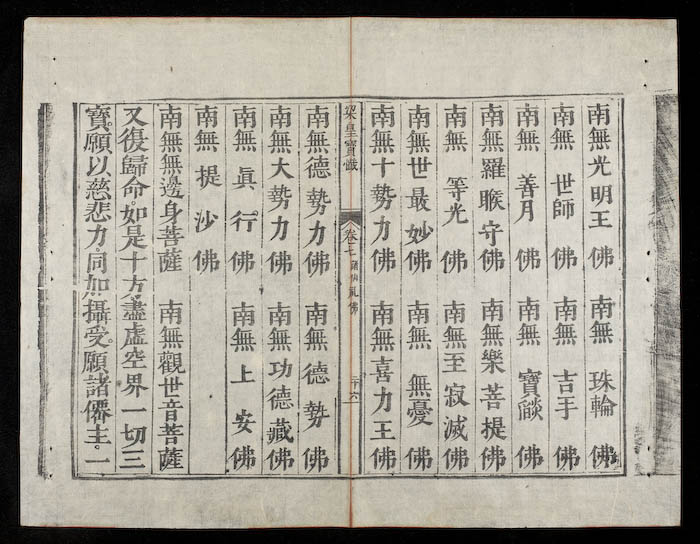 南無光明王佛　南無珠輪佛
南無世師佛　南無吉手佛
南無善月佛　南無寶燄佛
南無羅睺守佛　南無樂菩提佛
南無等光佛　南無至寂滅佛
南無世最妙佛　南無無憂佛
南無十勢力佛　南無喜力王佛
梁皇寶懺　卷七　佛
南無德勢力佛　南無德勢佛
南無大勢力佛　南無功德藏佛
南無眞行佛　南無上安佛
南無提沙佛
南無無邊身菩薩　南無觀世音菩薩
又復歸命。如是十方。盡虛空界一切三
寶。願以慈悲力。同加攝受。願諸僊主。一